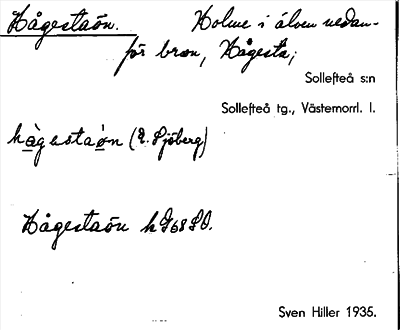 Hågestaön. Holme i älven nedan-
för bron, Hågesta;
Sollefteå s:n
Sollefteå tg., Västernorrl. l.
hågestaön (E. Sjöberg)
Hågestaön
Sven Hiller 1935.